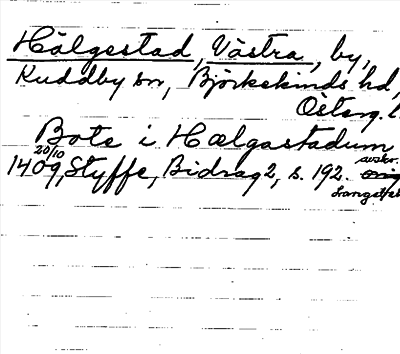 Hälgestad, Västra, by,
Kuddby sn, Björkekinds hd,
Österg. l.
Bote i Hælgastadum
20/10
1409, Styffe, Bidrag 2, s. 192. avskr.